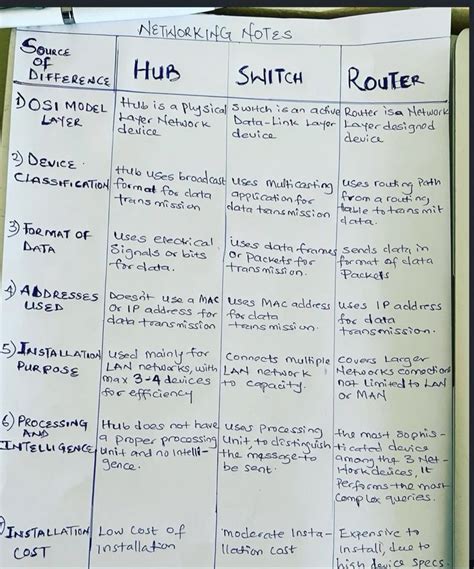 NETWORKING NOTES
SOURCE
OF
DIFFERENCE
HUB
SWITCH
ROUTER
1) OSI MODEL
LAYER
Hub is a physical
Layer Network
device
Switch is an active
Data-Link Layer
device
Router is a Network
Layer designed
device
2) DEVICE
CLASSIFICATION
Hub uses broadcast
format for data
transmission
uses multicasting
application for
data transmission
uses routing Path
from a routing
table to transmit
data.
3) FORMAT OF
DATA
uses electrical
Signals or bits
for data.
uses data frames
or Packets for
transmission.
sends data in
format of data
Packets
4) ADDRESSES
USED
Doesn't use a MAC
or IP address for
data transmission
uses MAC address
for data
transmission.
uses IP address
for data
transmission.
5) INSTALLATION
PURPOSE
used mainly for
LAN networks, with
max 3-4 devices
for efficiency
Connects multiple
LAN network
to capacity.
Covers Larger
Networks connection
not limited to LAN
or MAN
6) PROCESSING
AND
INTELLIGENCE
Hub does not have
a proper processing
unit and no intelli-
gence.
uses Processing
Unit to distinguish
the message to
be sent.
the most sophis-
ticated device
among the 3 Net-
work devices, It
Performs the most
complex queries.
INSTALLATION
COST
Low Cost of
installation
moderate Insta-
llation cost
Expensive to
Install, due to
high device specs.